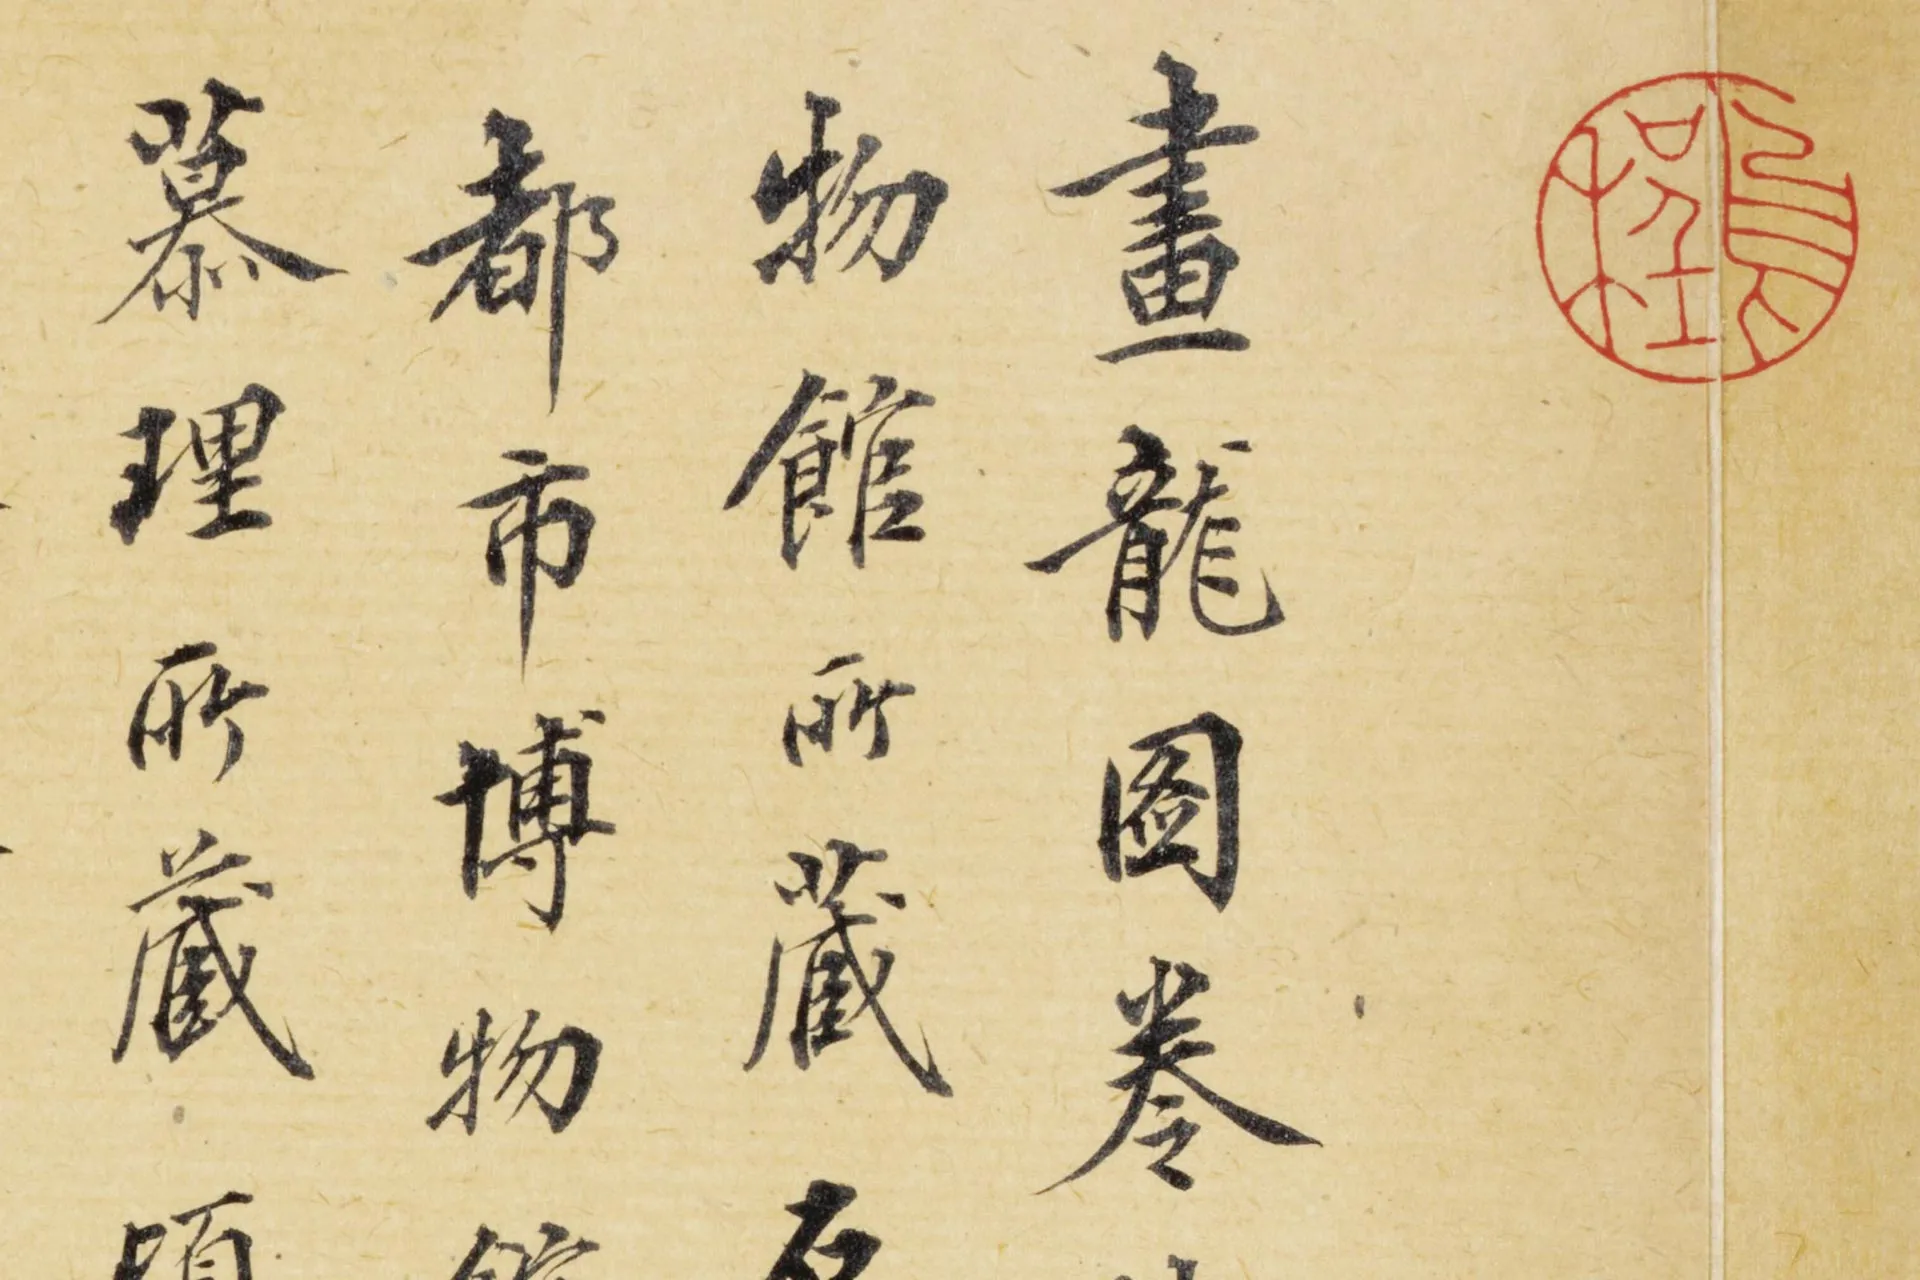 畫龍圖卷
物館所藏
都市博物館
慕理所藏